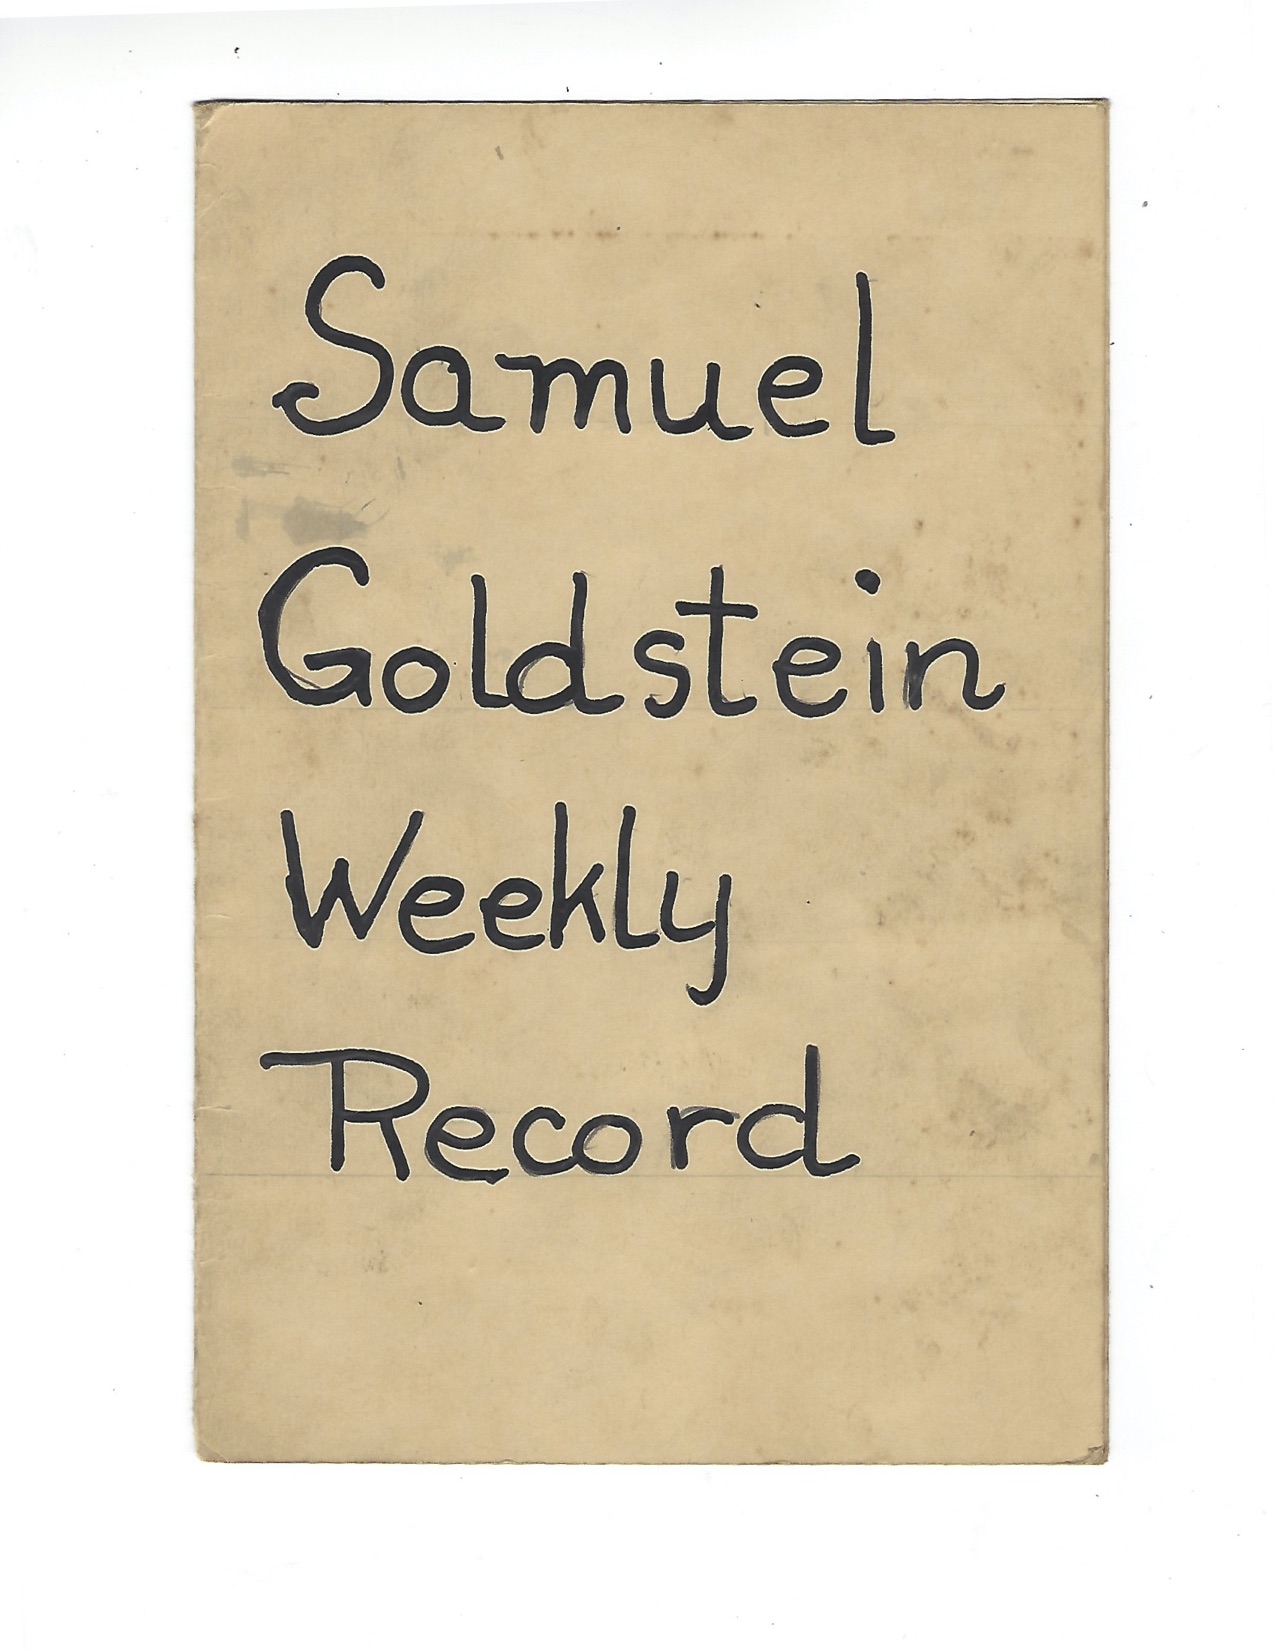 Samuel
Goldstein
Weekly
Record